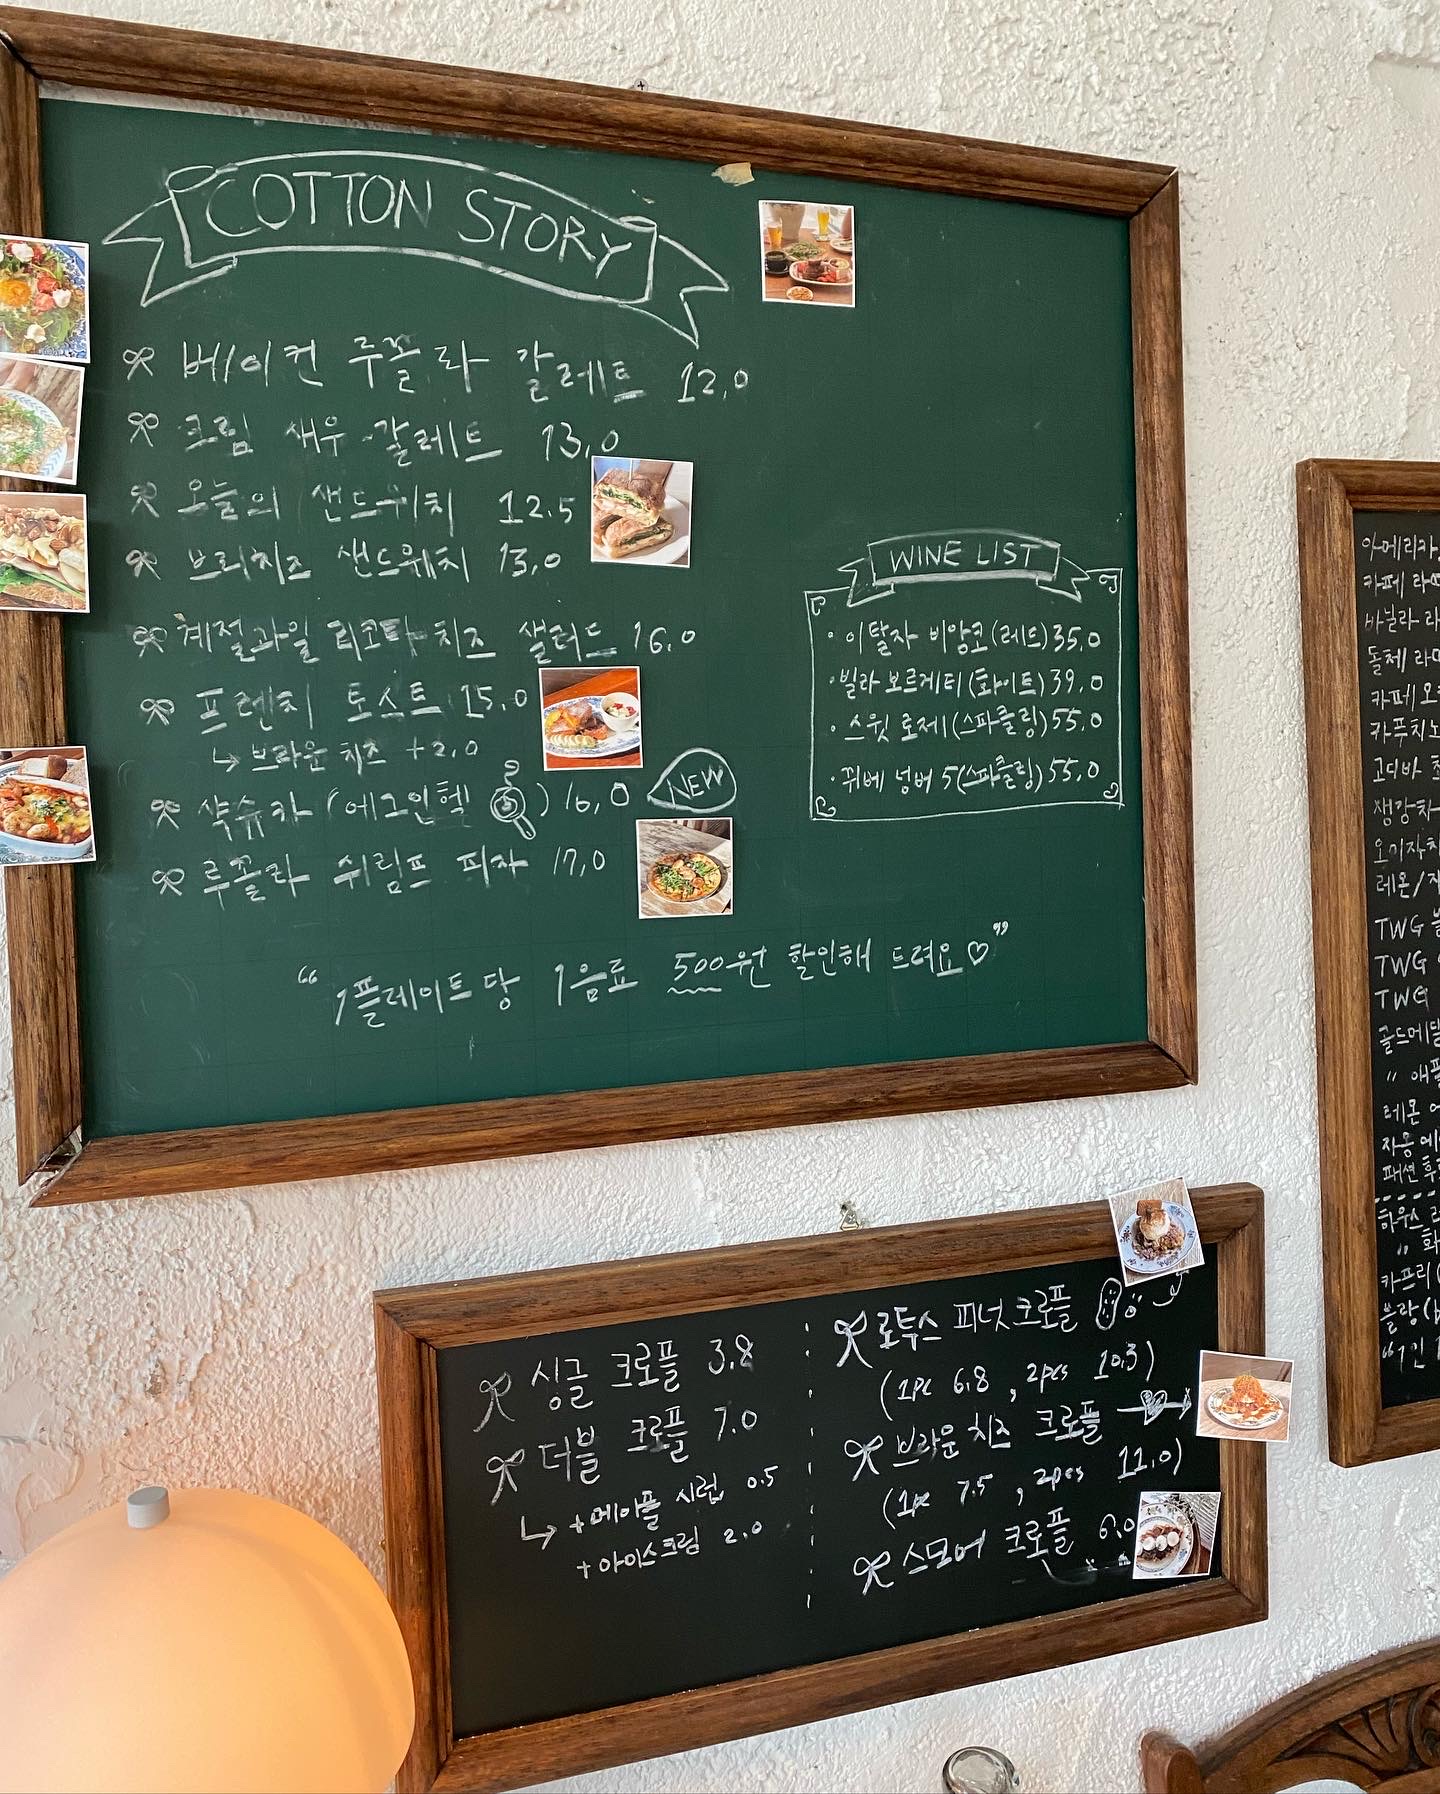 COTTON STORY
베이컨 루꼴라 갈레트 12.0
크림 새우 갈레트 13.0
오늘의 샌드위치 12.5
브리치즈 샌드위치 13.0
계절과일 리코타 치즈 샐러드 16.0
프렌치 토스트 15.0
↳ 브라운 치즈 +2.0
샥슈카 (에그인헬) 16.0
NEW
루꼴라 쉬림프 피자 17.0
"1플레이트당 1음료 500원 할인해 드려요♡"
WINE LIST
· 이탈자 비앙코(레드) 35.0
· 빌라 보르게티(화이트) 39.0
· 스윗 로제(스파클링) 55.0
· 뀌베 넘버 5(스파클링) 55.0
싱글 크로플 3.8
더블 크로플 7.0
↳ +메이플 시럽 0.5
+아이스크림 2.0
로투스 피넛 크로플
(1pc 6.8, 2pcs 10.3)
브라운 치즈 크로플
(1pc 7.5, 2pcs 11.0)
스모어 크로플 6.0
아메리카
카페 라
바닐라 라
돌체 라
카페 모
카푸치노
고디바
생강차
오기자차
레몬/
TWG
TWG
TWG
골드메달
" 애플
레몬 에
자몽 에이
패션후르
하우스
" 화
카프리(
블랑(
"1인 1